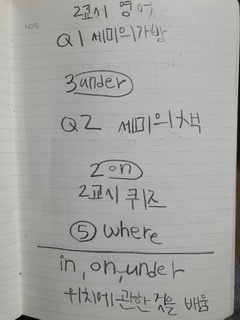 NOTE
2교시 영어
Q1 세미의가방
3 under
Q2 세미의책
2 on
2교시 퀴즈
⑤ where
in, on, under
위치에관한 것을 배움